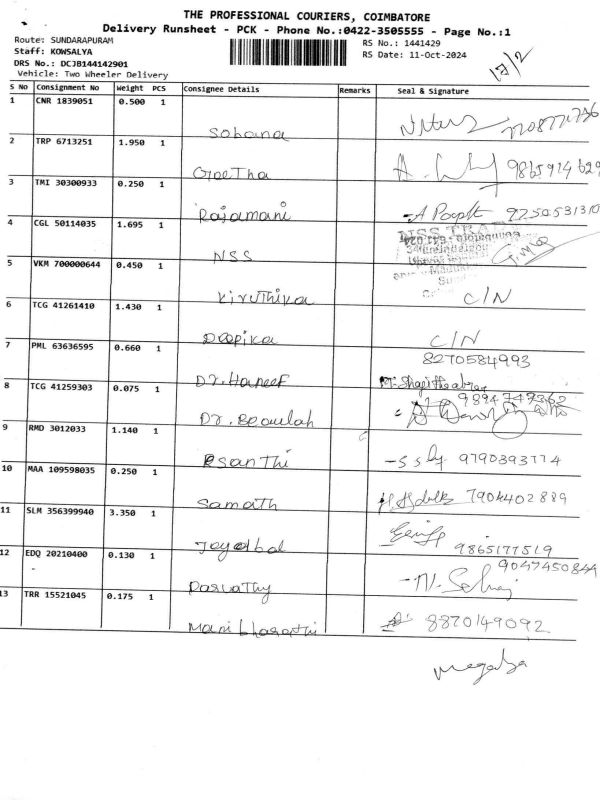 THE PROFESSIONAL COURIERS, COIMBATORE
Delivery Runsheet - PCK - Phone No.:0422-3505555 - Page No.:1
Route: SUNDARAPURAM RS No.: 1441429
Staff: KOWSALYA RS Date: 11-Oct-2024
DRS No.: DCJB144142901
Vehicle: Two Wheeler Delivery
S No Consignment No Weight PCS Consignee Details Remarks Seal & Signature
1 CNR 1839051 0.500 1
Sobana
2 TRP 6713251 1.950 1
Geetha 9865914629
3 TMI 30300933 0.250 1
Rajamani 9250531310
4 CGL 50114035 1.695 1
NSS
5 VKM 700000644 0.450 1
Kiruthika C/N
6 TCG 41261410 1.430 1
Deepika C/N
8270584993
7 PML 63636595 0.660 1
Dr.Haneef
8 TCG 41259303 0.075 1 9894747362
Dr.Beaulah
9 RMD 3012033 1.140 1
9790393774
10 MAA 109598035 0.250 1
Samath 7904402889
11 SLM 356399940 3.350 1
9865177519
12 EDQ 20210400 0.130 1 9047450844
-
Parvathy
13 TRR 15521045 0.175 1
Manibharathi 8870149092